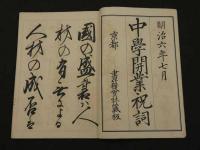 明治六年七月
中學開業祝詞
京都 書籍會社藏版
國の盛衰ハ人
材の有無による
人材の成否ハ